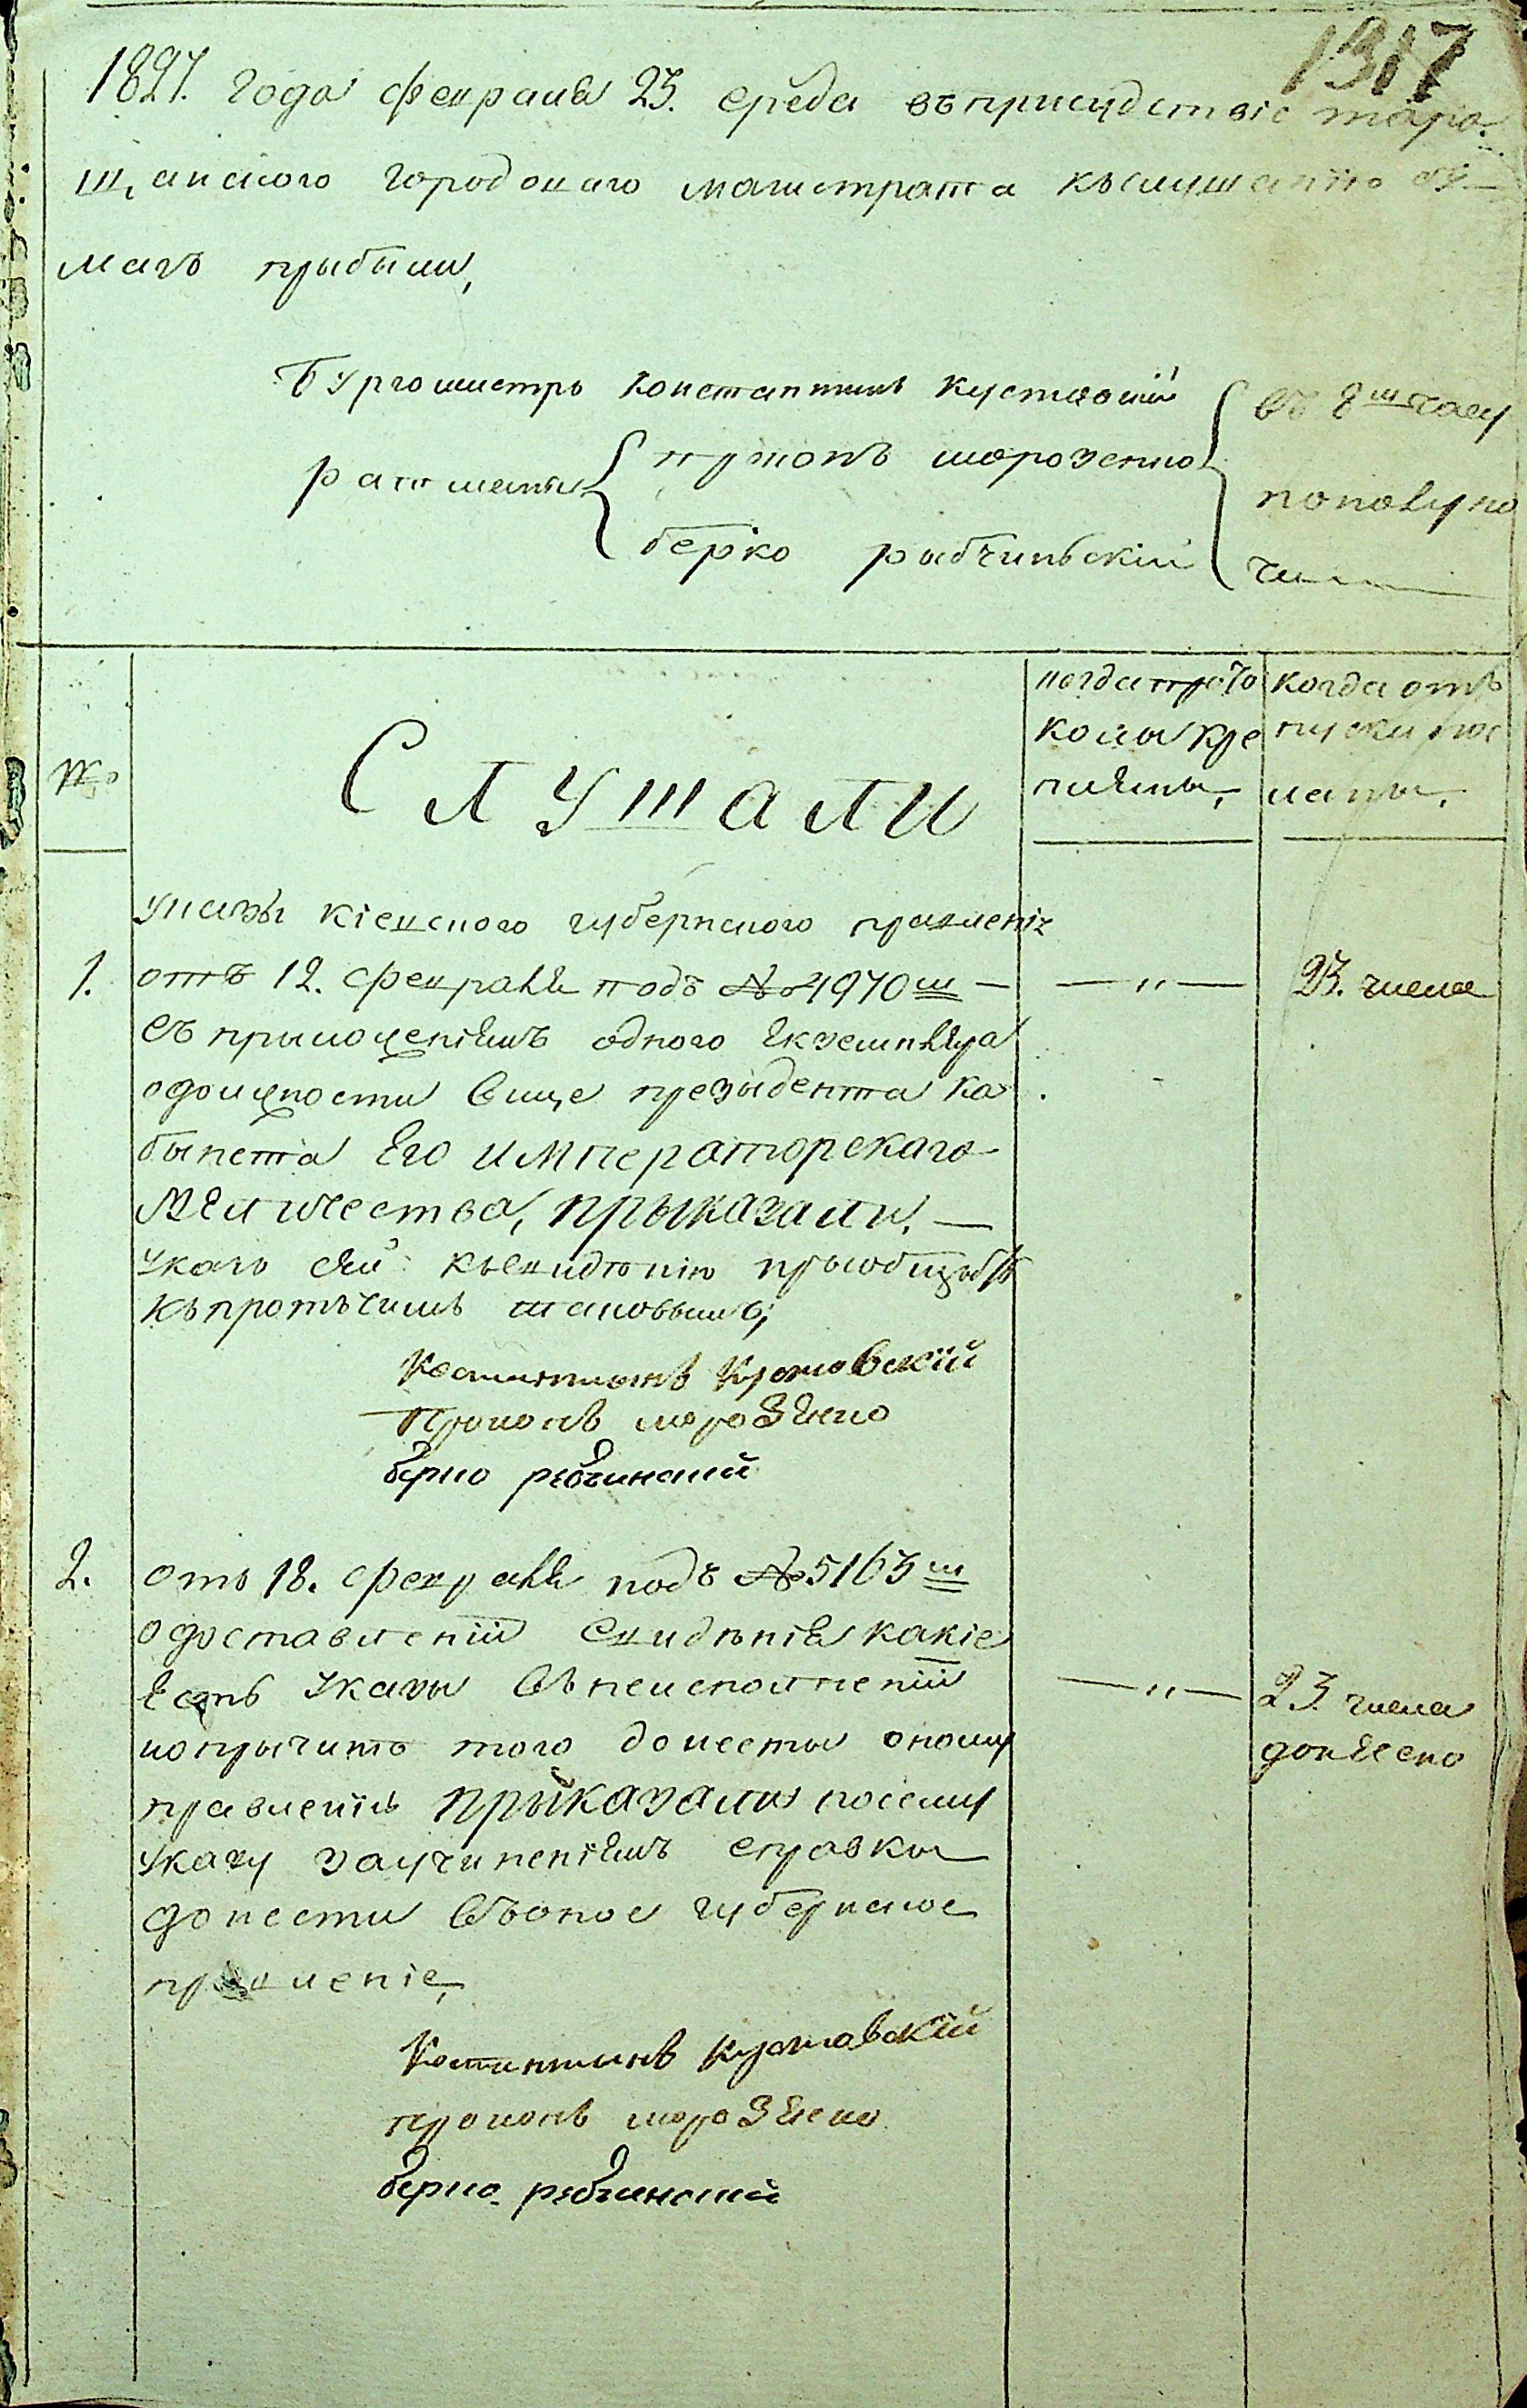 1317
1827. года февраля 23. среда въ присудствіе тара-
щанского городоваго магистрата къ слушанію бу-
магъ прыбыли,
Бургомистръ Константинъ Кустовскій
ратманы
прокопъ морозенко
берко рыбчиньскій
въ 8 м часу
пополуно
чи
№
Слушали
когда прото
колы кре
плены,
когда отъ
пуски пос
ланы,
указы кіевского губернского правленія
1. отъ 12. февраля подъ № 4970 м — — " — 23. числа
съ приложеніямъ одного якземпляра
о должности вице презыдента ка
бынета Его императорскаго
Величества, прыказали, —
указъ сяй къ свидѣнію прыобщыть
къ протчимъ таковымъ;
Константынъ Кустовскій
Прокопъ морозянко
берко рыбчинский
2. отъ 18. февраля подъ № 5163 м
о доставленіи свидѣнія какіе
ясть указы въ неисполненіи
и о прычинѣ того донесты оному
правленію прыказали по сему
указу за учиненіямъ справки
донести въ оное губернское
правленіе,
— " — 23. числа
донясено
Константинъ Кустовскій
прокопъ морозянко
берко рыбчинский